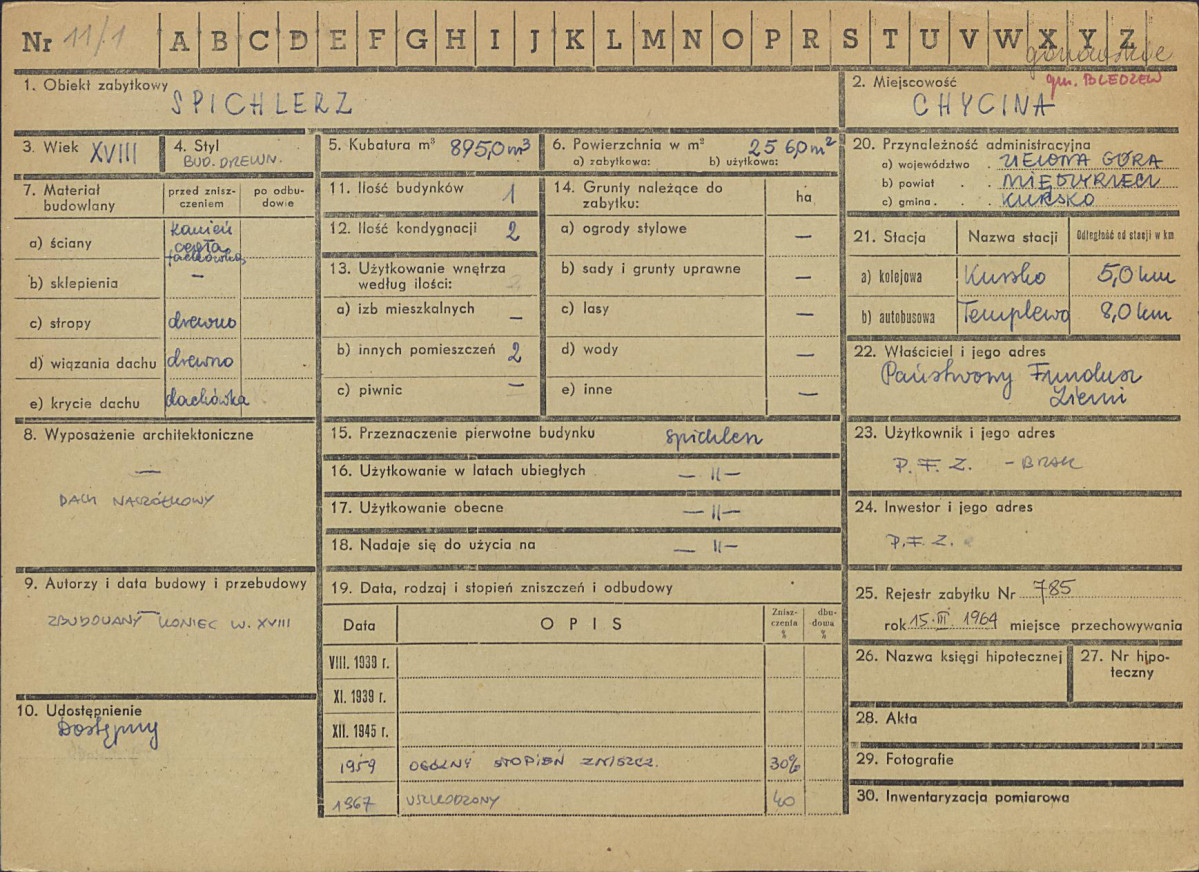 Nr 11/1 A B C D E F G H I J K L M N O P R S T U V W X Y Z
gorzowskie
1. Obiekt zabytkowy
SPICHLERZ
2. Miejscowość gm. BLEDZEW
CHYCINA
3. Wiek XVIII
4. Styl
BUD. DREWN.
5. Kubatura m³ 895,0 m³
6. Powierzchnia w m² 256,0 m²
a) zabytkowa: b) użytkowa:
7. Materiał budowlany
przed znisz-
czeniem
po odbu-
dowie
a) ściany
kamień
cegła
dachówka
b) sklepienia —
c) stropy drewno
d) wiązania dachu drewno
e) krycie dachu dachówka
8. Wyposażenie architektoniczne
—
DACH NACZÓŁKOWY
9. Autorzy i data budowy i przebudowy
ZBUDOWANY KONIEC W. XVIII
10. Udostępnienie
Dostępny
11. Ilość budynków 1
12. Ilość kondygnacji 2
13. Użytkowanie wnętrza
według ilości:
a) izb mieszkalnych —
b) innych pomieszczeń 2
c) piwnic —
14. Grunty należące do
zabytku: ha
a) ogrody stylowe —
b) sady i grunty uprawne —
c) lasy —
d) wody —
e) inne —
15. Przeznaczenie pierwotne budynku spichlerz
16. Użytkowanie w latach ubiegłych — || —
17. Użytkowanie obecne — || —
18. Nadaje się do użycia na — || —
19. Data, rodzaj i stopień zniszczeń i odbudowy
Data OPIS
Znisz-
czenia
%
dbu-
-dowa
%
VIII. 1939 r.
XI. 1939 r.
XII. 1945 r.
1959 OGÓLNY STOPIEŃ ZNISZCZ. 30%
1967 USZKODZONY 40
20. Przynależność administracyjna
a) województwo . ZIELONA GÓRA
b) powiat . . MIĘDZYRZECZ
c) gmina . . . KURSKO
21. Stacja Nazwa stacji Odległość od stacji w km
a) kolejowa Kursko 5,0 km
b) autobusowa Templewo 8,0 km
22. Właściciel i jego adres
Państwowy Fundusz
Ziemi
23. Użytkownik i jego adres
P. F. Z. - BRAK
24. Inwestor i jego adres
P. F. Z.
25. Rejestr zabytku Nr 785
rok 15. III. 1964 miejsce przechowywania
26. Nazwa księgi hipotecznej
27. Nr hipo-
teczny
28. Akta
29. Fotografie
30. Inwentaryzacja pomiarowa